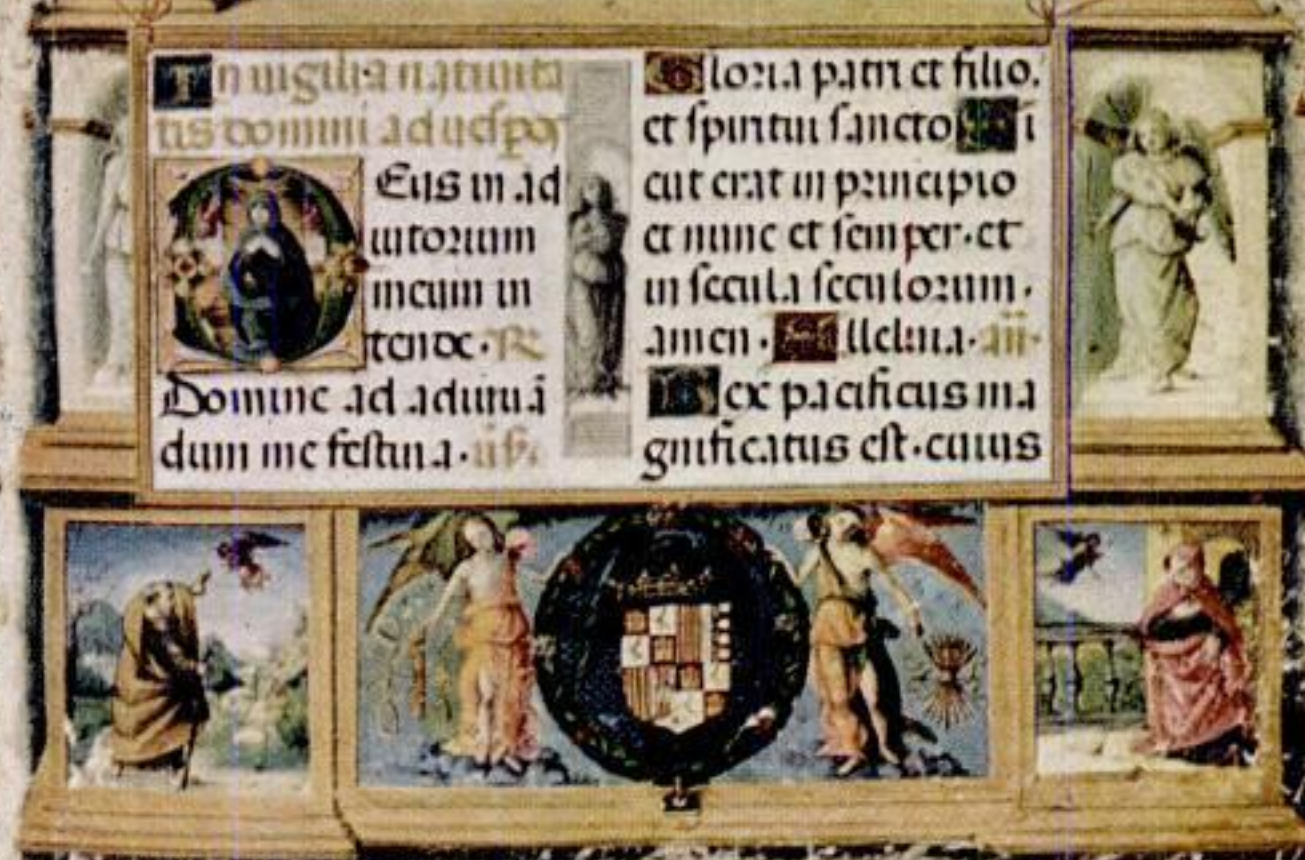 In uigilia natiuita
tis domini ad uesp̄oꝝ
Eus in ad
iutorium
meum in
tende. ℞
Domine ad adiuuā
dum me festina. ūs.
Gloria patri et filio.
et spiritui sancto Si
cut erat in principio
et nunc et semper. et
in secula seculorum.
amen. Alleluia. añ.
Rex pacificus ma
gnificatus est. cuius